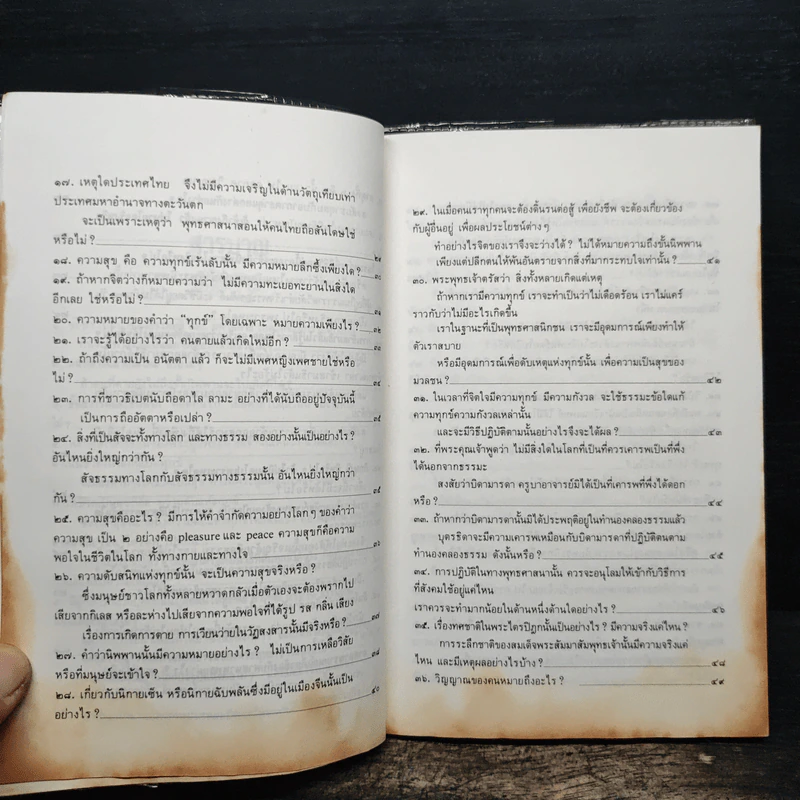 ๑๗. เหตุใดประเทศไทย จึงไม่มีความเจริญในด้านวัตถุเทียบเท่า
ประเทศมหาอำนาจทางตะวันตก
จะเป็นเพราะเหตุว่า พุทธศาสนาสอนให้คนไทยถือสันโดษใช่
หรือไม่ ? ๒๙
๑๘. ความสุข คือ ความทุกข์เร้นลับนั้น มีความหมายลึกซึ้งเพียงใด ? ๓๐
๑๙. ถ้าหากจิตว่างก็หมายความว่า ไม่มีความทะเยอทะยานในสิ่งใด
อีกเลย ใช่หรือไม่ ? ๓๑
๒๐. ความหมายของคำว่า “ทุกข์” โดยเฉพาะ หมายความเพียงไร ? ๓๒
๒๑. เราจะรู้ได้อย่างไรว่า คนตายแล้วเกิดใหม่อีก ? ๓๔
๒๒. ถ้าถึงความเป็น อนัตตา แล้ว ก็จะไม่มีเพศหญิงเพศชายใช่หรือ
ไม่ ? ๓๔
๒๓. การที่ชาวธิเบตนับถือดาไล ลามะ อย่างที่ได้นับถืออยู่ปัจจุบันนี้
เป็นการถืออัตตาหรือเปล่า ? ๓๕
๒๔. สิ่งที่เป็นสัจจะทั้งทางโลก และทางธรรม สองอย่างนั้นเป็นอย่างไร ?
อันไหนยิ่งใหญ่กว่ากัน ?
สัจธรรมทางโลกกับสัจธรรมทางธรรมนั้น อันไหนยิ่งใหญ่กว่า
กัน ? ๓๕
๒๕. ความสุขคืออะไร ? มีการให้คำจำกัดความอย่างโลก ๆ ของคำว่า
ความสุข เป็น ๒ อย่างคือ pleasure และ peace ความสุขก็คือความ
พอใจในชีวิตในโลก ทั้งทางกายและทางใจ ๓๖
๒๖. ความดับสนิทแห่งทุกข์นั้น จะเป็นความสุขจริงหรือ ?
ซึ่งมนุษย์ชาวโลกทั้งหลายหวาดกลัวเมื่อตัวเองจะต้องพรากไป
เสียจากกิเลส หรือละห่างไปเสียจากความพอใจที่ได้รูป รส กลิ่น เสียง
เรื่องการเกิดการตาย การเวียนว่ายในวัฏสงสารนั้นมีจริงหรือ ? ๓๗
๒๗. คำว่านิพพานนั้นมีความหมายอย่างไร ? ไม่เป็นการเหลือวิสัย
หรือที่มนุษย์จะเข้าใจ ? ๓๘
๒๘. เกี่ยวกับนิกายเซ็น หรือนิกายฉับพลันซึ่งมีอยู่ในเมืองจีนนั้นเป็น
อย่างไร ? ๔๐
๒๙. ในเมื่อคนเราทุกคนจะต้องดิ้นรนต่อสู้ เพื่อยังชีพ จะต้องเกี่ยวข้อง
กับผู้อื่นอยู่ เพื่อผลประโยชน์ต่าง ๆ
ทำอย่างไรจิตของเราจึงจะว่างได้ ? ไม่ได้หมายความถึงขั้นนิพพาน
เพียงแต่ปลีกตนให้พ้นอันตรายจากสิ่งที่มากระทบใจเท่านั้น ? ๔๑
๓๐. พระพุทธเจ้าตรัสว่า สิ่งทั้งหลายเกิดแต่เหตุ
ถ้าหากเรามีความทุกข์ เราจะทำเป็นว่าไม่เดือดร้อน เราไม่แคร์
ราวกับว่าไม่มีอะไรเกิดขึ้น
เราในฐานะที่เป็นพุทธศาสนิกชน เราจะมีอุดมการณ์เพียงทำให้
ตัวเราสบาย
หรือมีอุดมการณ์เพื่อดับเหตุแห่งทุกข์นั้น เพื่อความเป็นสุขของ
มวลชน ? ๔๒
๓๑. ในเวลาที่จิตใจมีความทุกข์ มีความกังวล จะใช้ธรรมะข้อใดแก้
ความทุกข์ความกังวลเหล่านั้น
และจะมีวิธีปฏิบัติตามนั้นอย่างไรจึงจะได้ผล ? ๔๓
๓๒. ที่พระคุณเจ้าพูดว่า ไม่มีสิ่งใดในโลกที่เป็นที่ควรเคารพเป็นที่พึ่ง
ได้นอกจากธรรมะ
สงสัยว่าบิดามารดา ครูบาอาจารย์มิได้เป็นที่เคารพที่พึ่งได้ดอก
หรือ ? ๔๔
๓๓. ถ้าหากว่าบิดามารดานั้นมิได้ประพฤติอยู่ในทำนองคลองธรรมแล้ว
บุตรธิดาจะมีความเคารพเหมือนกับบิดามารดาที่ปฏิบัติตนตาม
ทำนองคลองธรรม ดังนั้นหรือ ? ๔๕
๓๔. การปฏิบัติในทางพุทธศาสนานั้น ควรจะอนุโลมให้เข้ากับวิธีการ
ที่สังคมใช้อยู่แค่ไหน
เราควรจะทำมากน้อยในด้านหนึ่งด้านใดอย่างไร ? ๔๖
๓๕. เรื่องทศชาติในพระไตรปิฎกนั้นเป็นอย่างไร ? มีความจริงแค่ไหน ?
การระลึกชาติของสมเด็จพระสัมมาสัมพุทธเจ้านั้นมีความจริงแค่
ไหน และมีเหตุผลอย่างไรบ้าง ? ๔๘
๓๖. วิญญาณของคนหมายถึงอะไร ? ๔๙